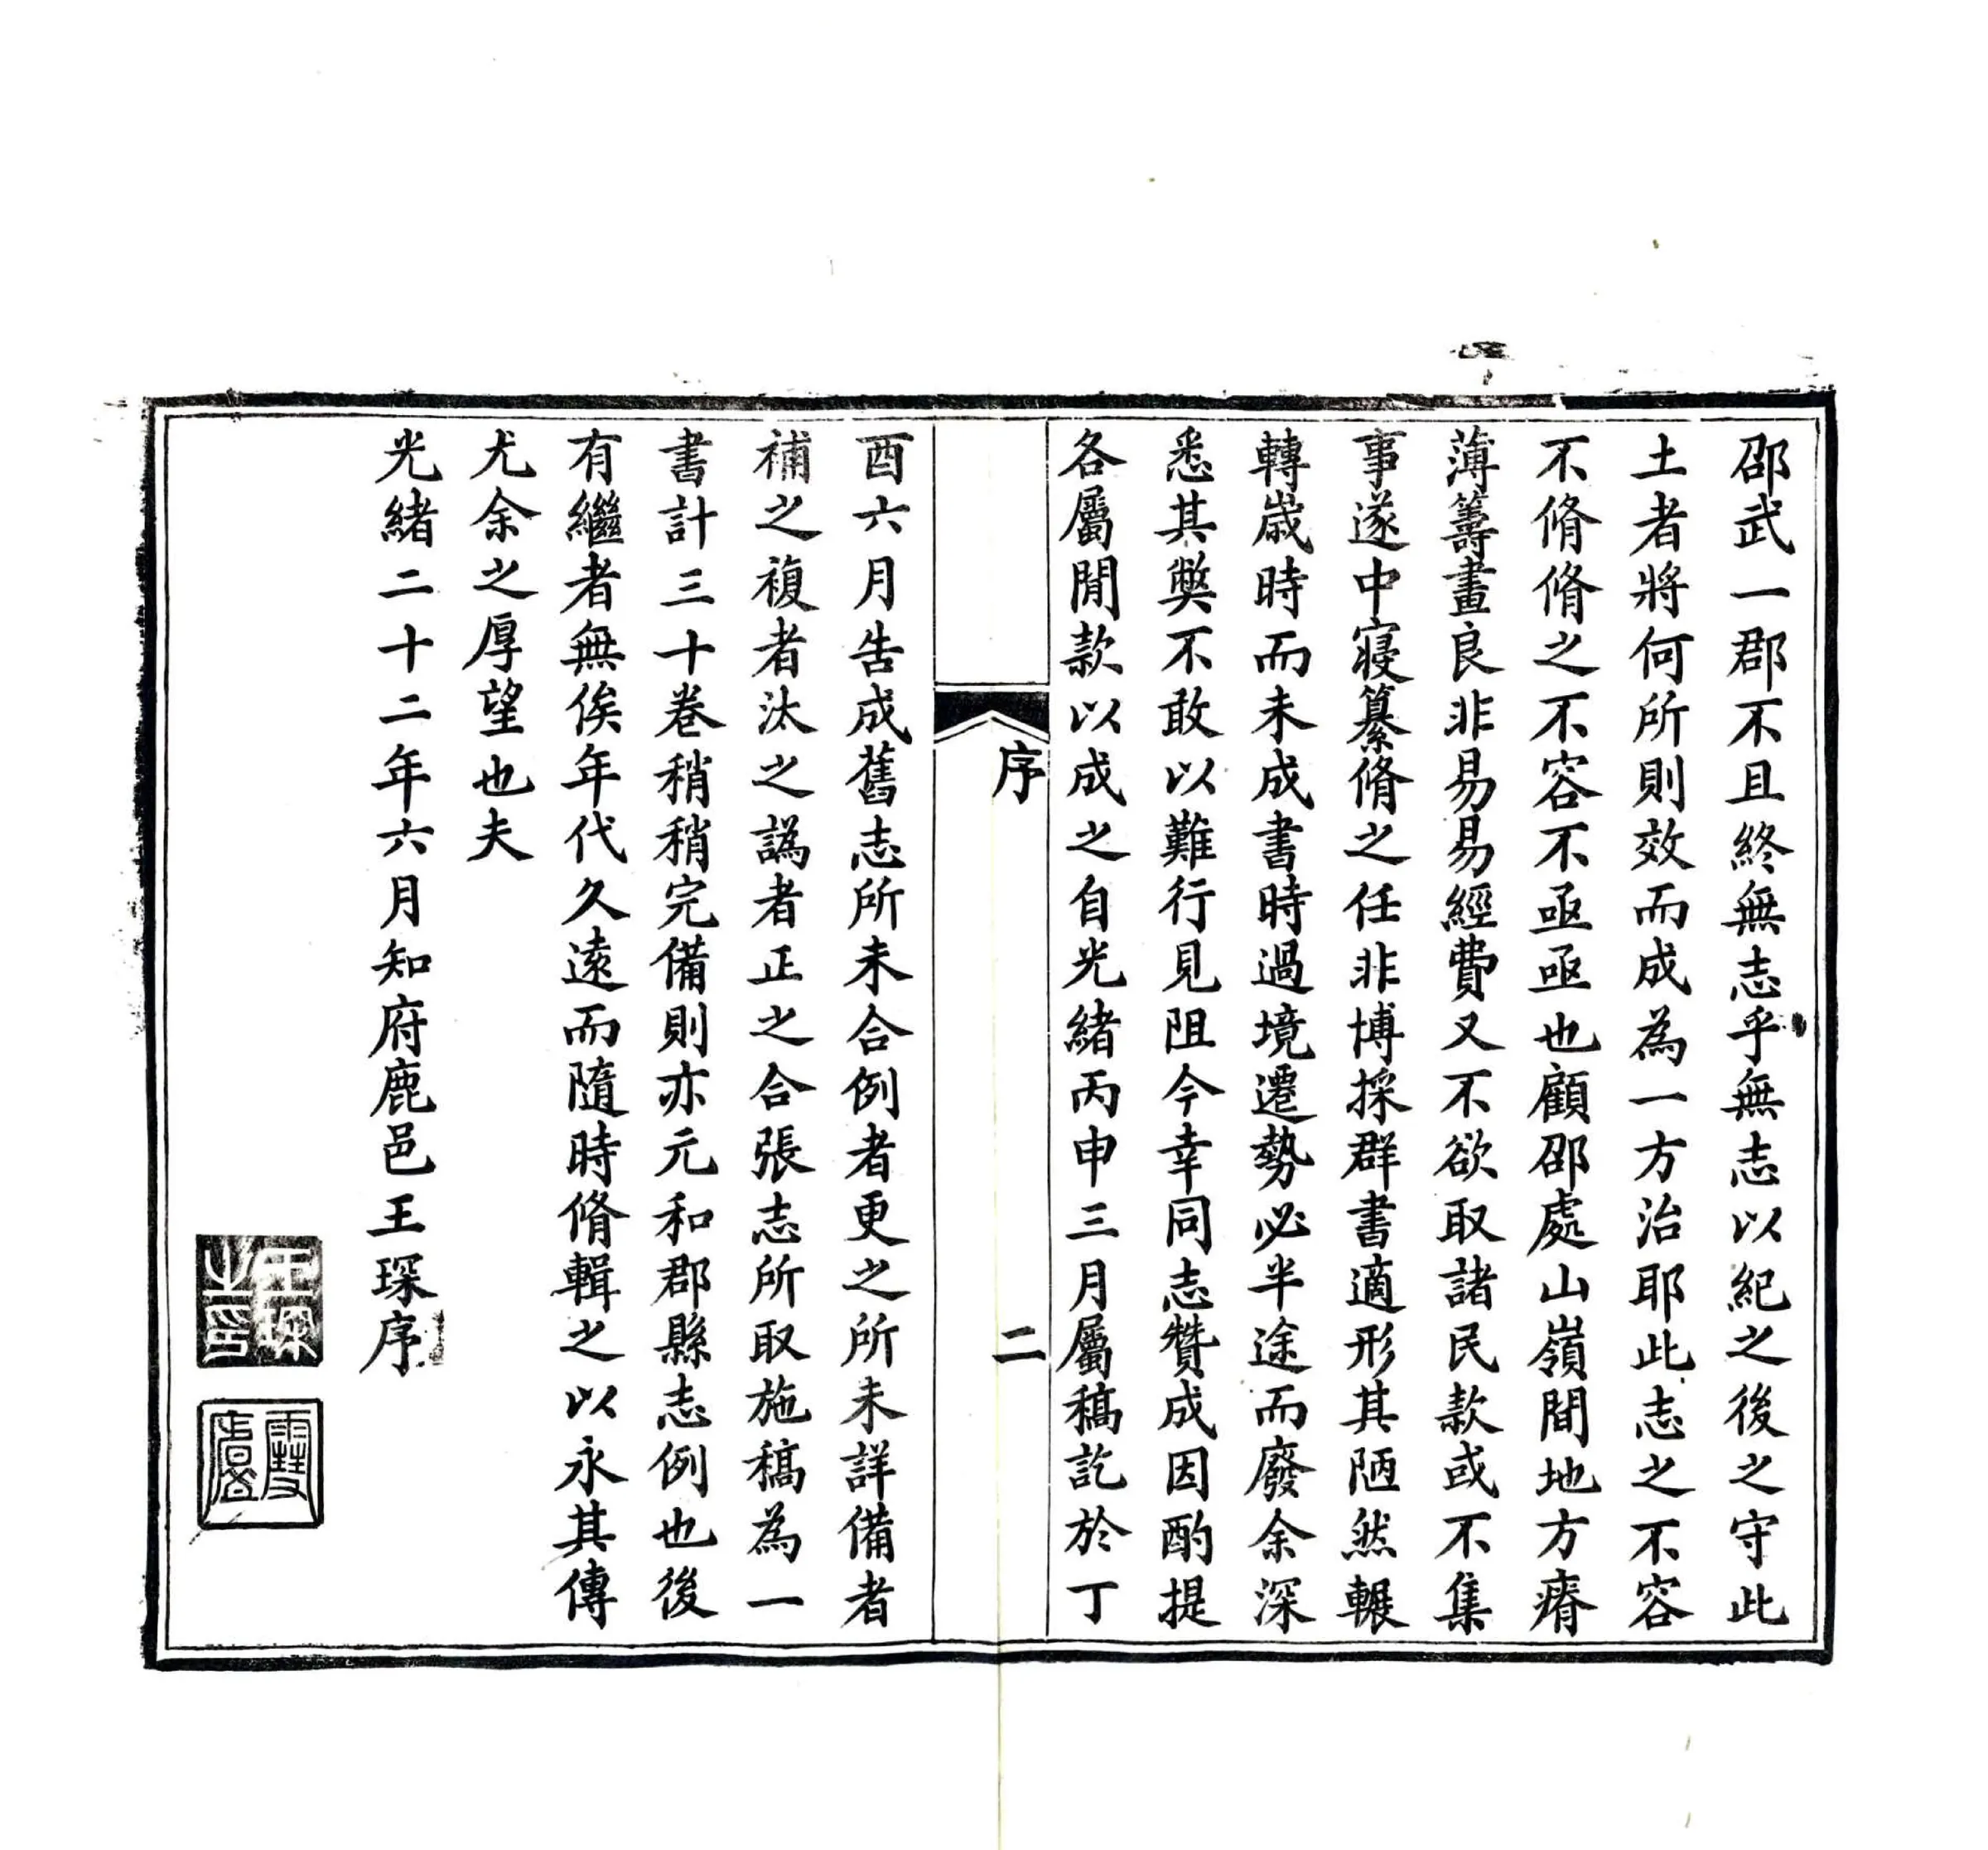 邵武一郡不且終無志乎無志以紀之後之守此
土者將何所則效而成為一方治耶此志之不容
不脩脩之不容不亟亟也顧邵處山嶺間地方瘠
薄籌畫良非易易經費又不欲取諸民款或不集
事遂中寢纂脩之任非博採群書適形其陋然輾
轉歲時而未成書時過境遷勢必半途而廢余深
悉其獘不敢以難行見阻今幸同志贊成因酌提
各屬閒款以成之自光緒丙申三月屬稿訖於丁
序
二
酉六月告成舊志所未合例者更之所未詳備者
補之複者汰之譌者正之合張志所取施稿為一
書計三十卷稍稍完備則亦元和郡縣志例也後
有繼者無俟年代久遠而隨時脩輯之以永其傳
尤余之厚望也夫
光緒二十二年六月知府鹿邑王琛序
王琛之印